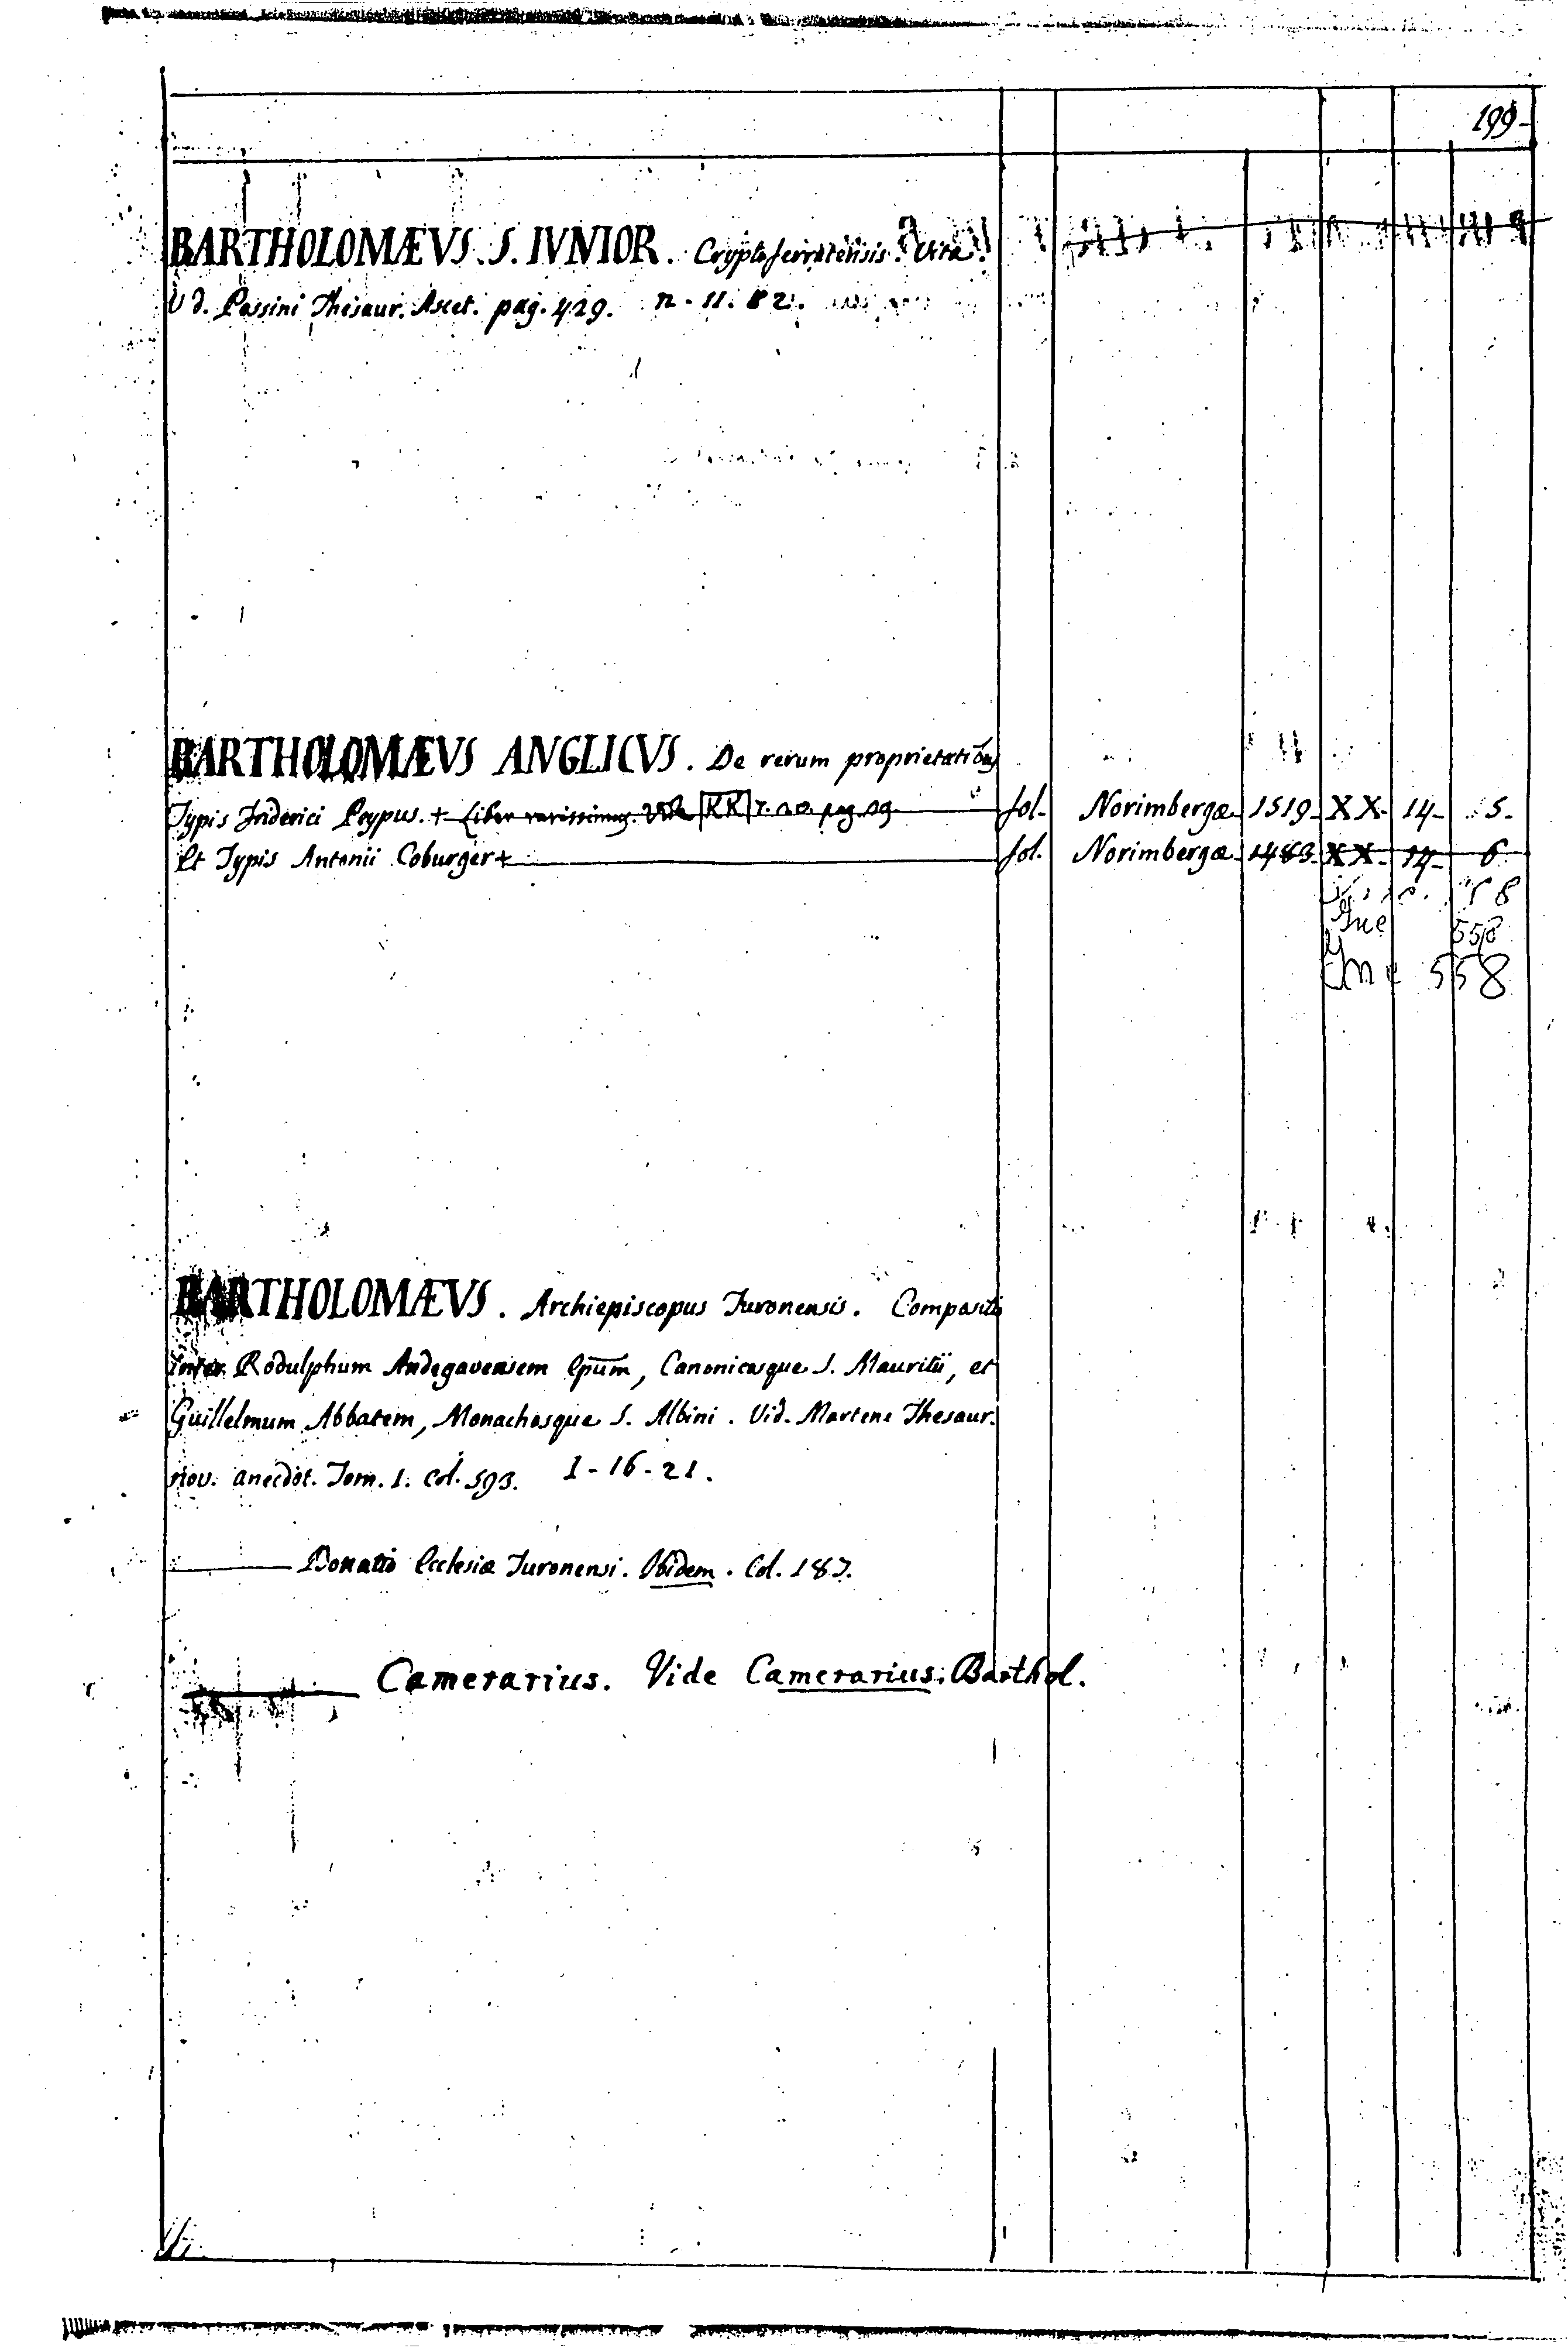 199.
BARTHOLOMÆVS. S. IVNIOR. Cryptoferratensis. Vita.
Vd. Possini Thesaur. Ascet. pag. 429. n - 11. 82.
BARTHOLOMÆVS ANGLICVS. De rerum proprietatibus
Typis Friderici Peypus. + Liber rarissimus. Vide KK 7. pag. fol. Norimbergæ 1519 XX 14 5.
Et Typis Antonii Coburger + fol. Norimbergæ 1483 XX 14 6
58
Inc 558
Inc 558
BARTHOLOMÆVS. Archiepiscopus Turonensis. Compositio
inter Rodulphum Andegavensem Epum, Canonicosque S. Mauritii, et
Guillelmum Abbatem, Monachosque S. Albini. Vid. Martene Thesaur.
nov. anecdot. Tom. 1. Col. 593. 1 - 16 - 21.
Donatio Ecclesiæ Turonensi. Ibidem. Col. 187.
Camerarius. Vide Camerarius. Barthol.